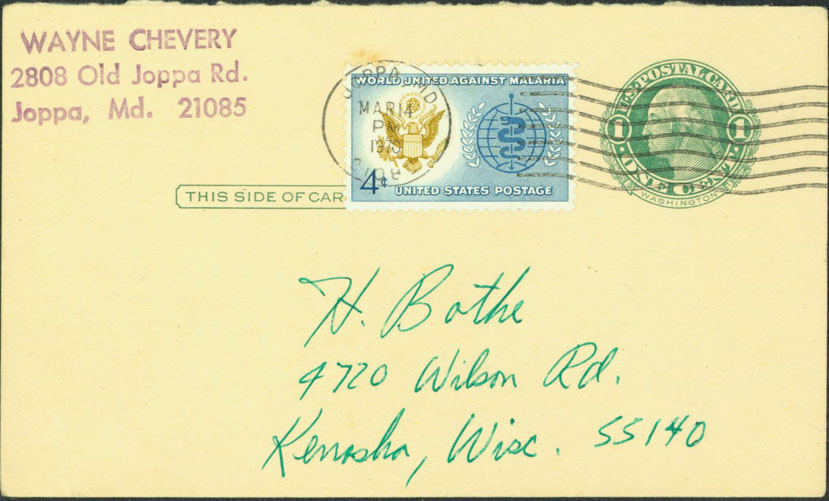 WAYNE CHEVERY
2808 Old Joppa Rd.
Joppa, Md. 21085
JOPPA, MD.
MAR 14
PM
1973
21085
WORLD UNITED AGAINST MALARIA
4¢
UNITED STATES POSTAGE
U.S. POSTAL CARD
1 1
ONE CENT
WASHINGTON
THIS SIDE OF CAR
H. Bothe
4720 Wilson Rd.
Kenosha, Wisc. 55140